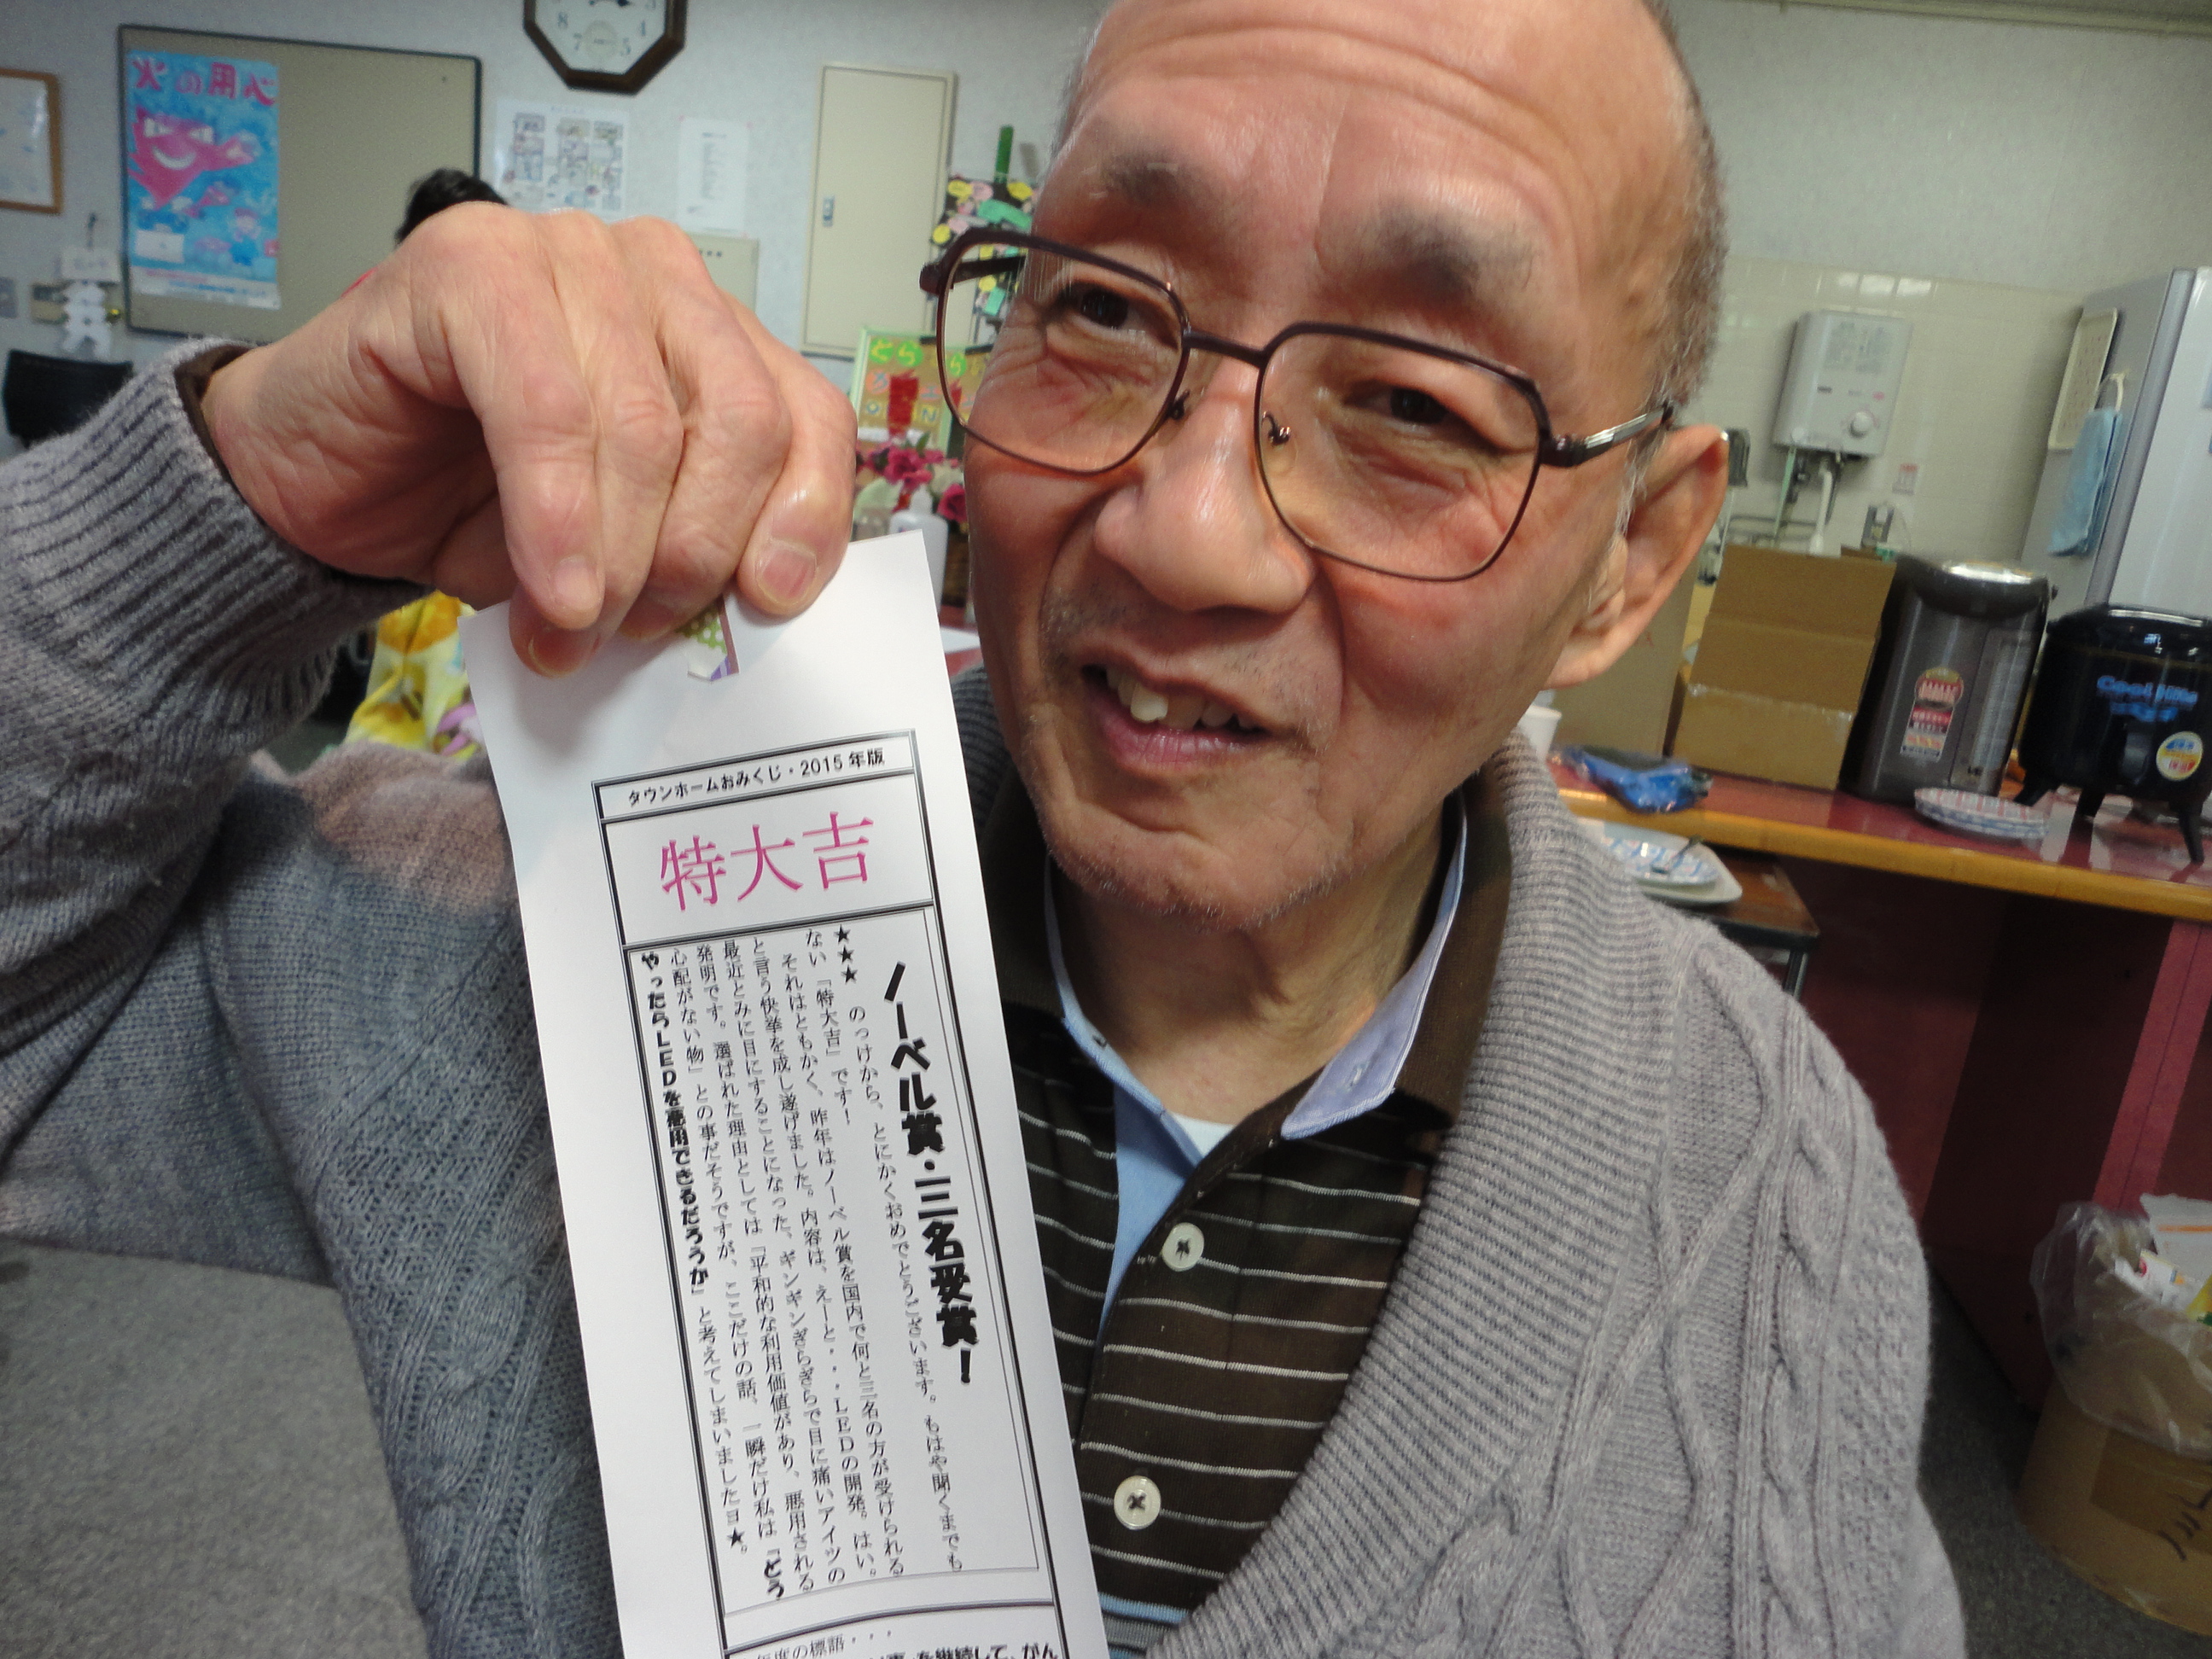 火の用心
タウンホームおみくじ・2015年版
特大吉
ノーベル賞・三名受賞！
★★★　のっけから、とにかくおめでとうございます。もはや聞くまでも
ない「特大吉」です！
それはともかく、昨年はノーベル賞を国内で何と三名の方が受けられる
と言う快挙を成し遂げました。内容は、えーと・・・LEDの開発。はい。
最近とみに目にすることになった、ギンギンぎらぎらで目に痛いアイツの
発明です。選ばれた理由としては『平和的な利用価値があり、悪用される
心配がない物』との事だそうですが、ここだけの話、一瞬だけ私は『どう
やったらLEDを悪用できるだろうか』と考えてしまいましたヨ★。
年度の標語・・・
を継続して、がん
Cool